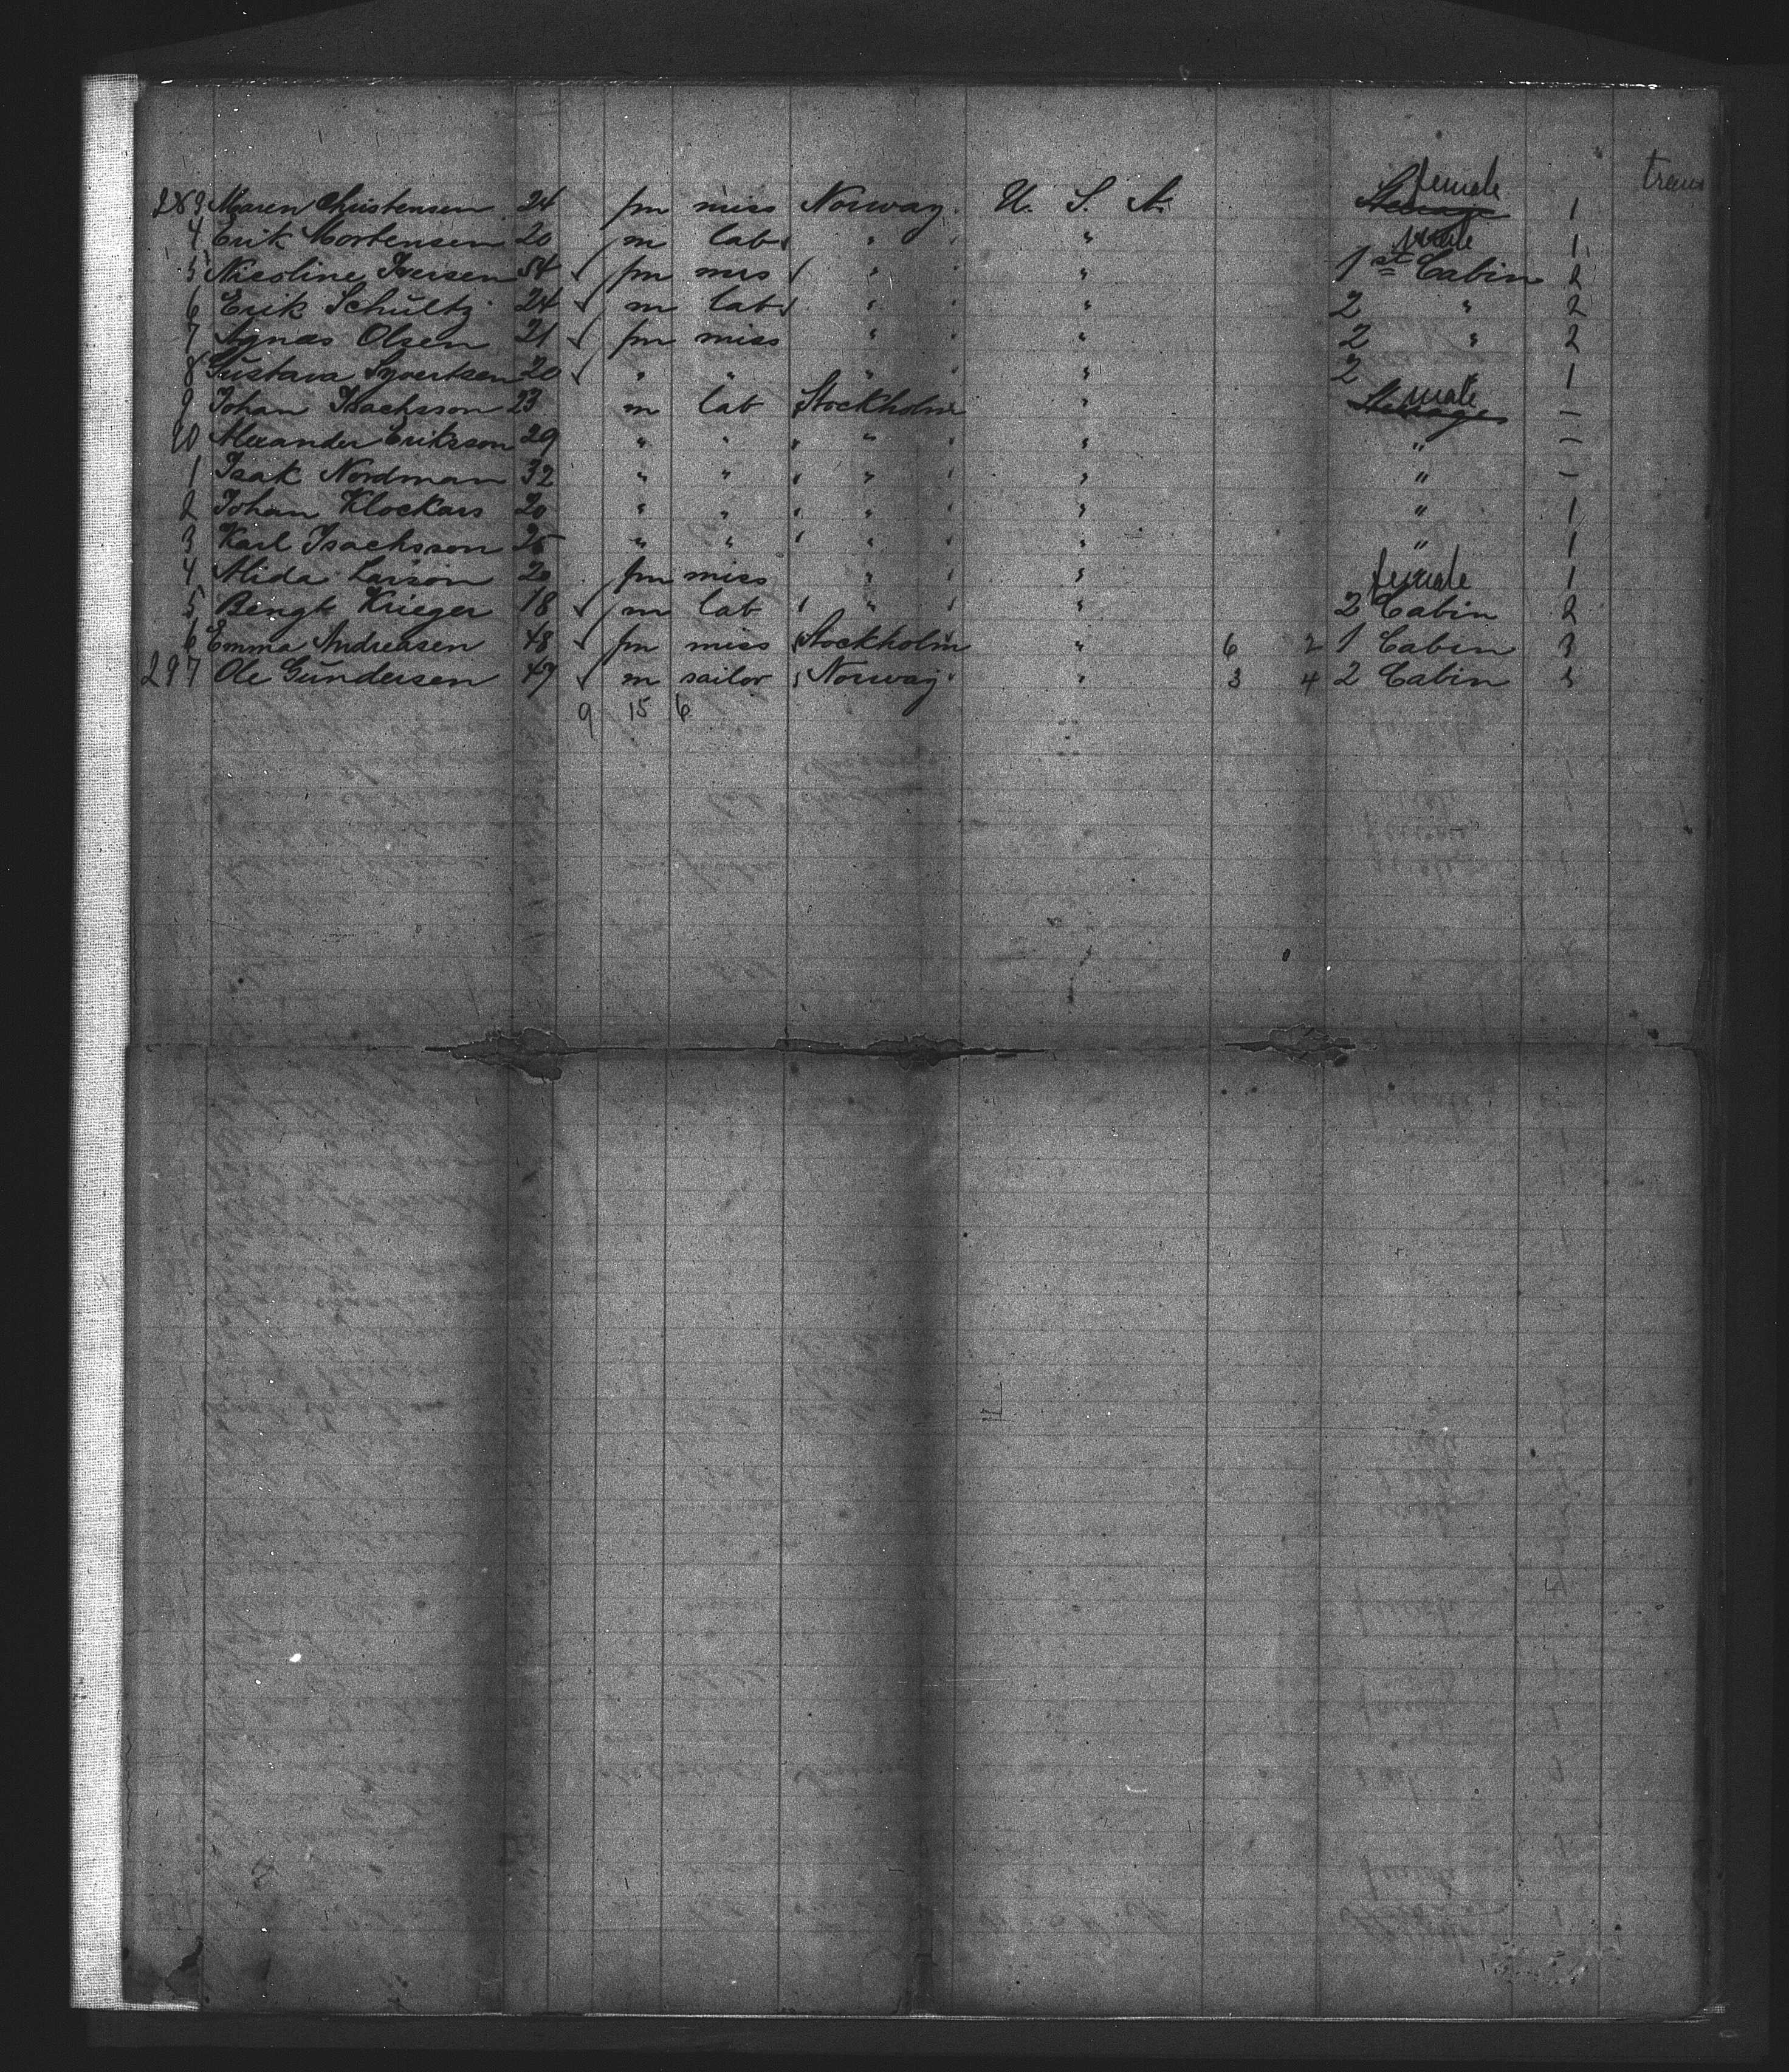 female trans
283 Maren Christensen 24 fm miss Norway U. S. A. Steerage 1
4 Erik Mortensen 20 m lab " " male 1
5 Nicoline Iversen 54 ✓ fm mrs " " 1st Cabin 2
6 Erik Schultz 24 ✓ m lab " " 2 " 2
7 Agnes Olsen 21 ✓ fm miss " " 2 " 2
8 Gustava Syvertsen 20 ✓ " " " " 2 " 1
9 Johan Isachsson 23 m lab Stockholm " Steerage male —
90 Alexander Eriksson 29 " " " " " —
1 Isak Nordman 32 " " " " " —
2 Johan Klockars 20 " " " " " 1
3 Karl Isachsson 25 " " " " " 1
4 Alida Larson 20 fm miss " " female 1
5 Bengt Krieger 18 ✓ m lab " " 2 Cabin 2
6 Emma Andreasen 48 ✓ fm miss Stockholm " 6 2 1 Cabin 3
297 Ole Gundersen 47 ✓ m sailor Norway " 3 4 2 Cabin 3
9 15 6